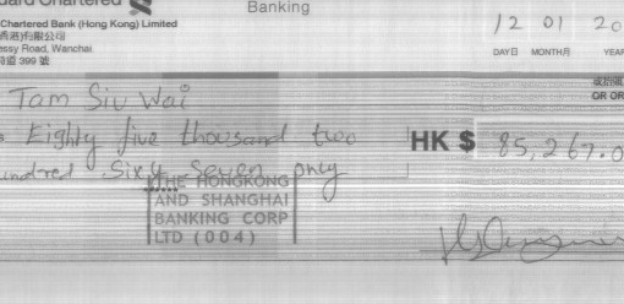 dard Chartered
Banking
Chartered Bank (Hong Kong) Limited
香港)有限公司
essy Road, Wanchai
道 399 號
12 01 20
DAY日 MONTH月 YEAR
Tam Siu Wai
OR OR
Eighty five thousand two
HK $ 85,267.0
undred Sixty Seven only
THE HONGKONG
AND SHANGHAI
BANKING CORP
LTD (004)